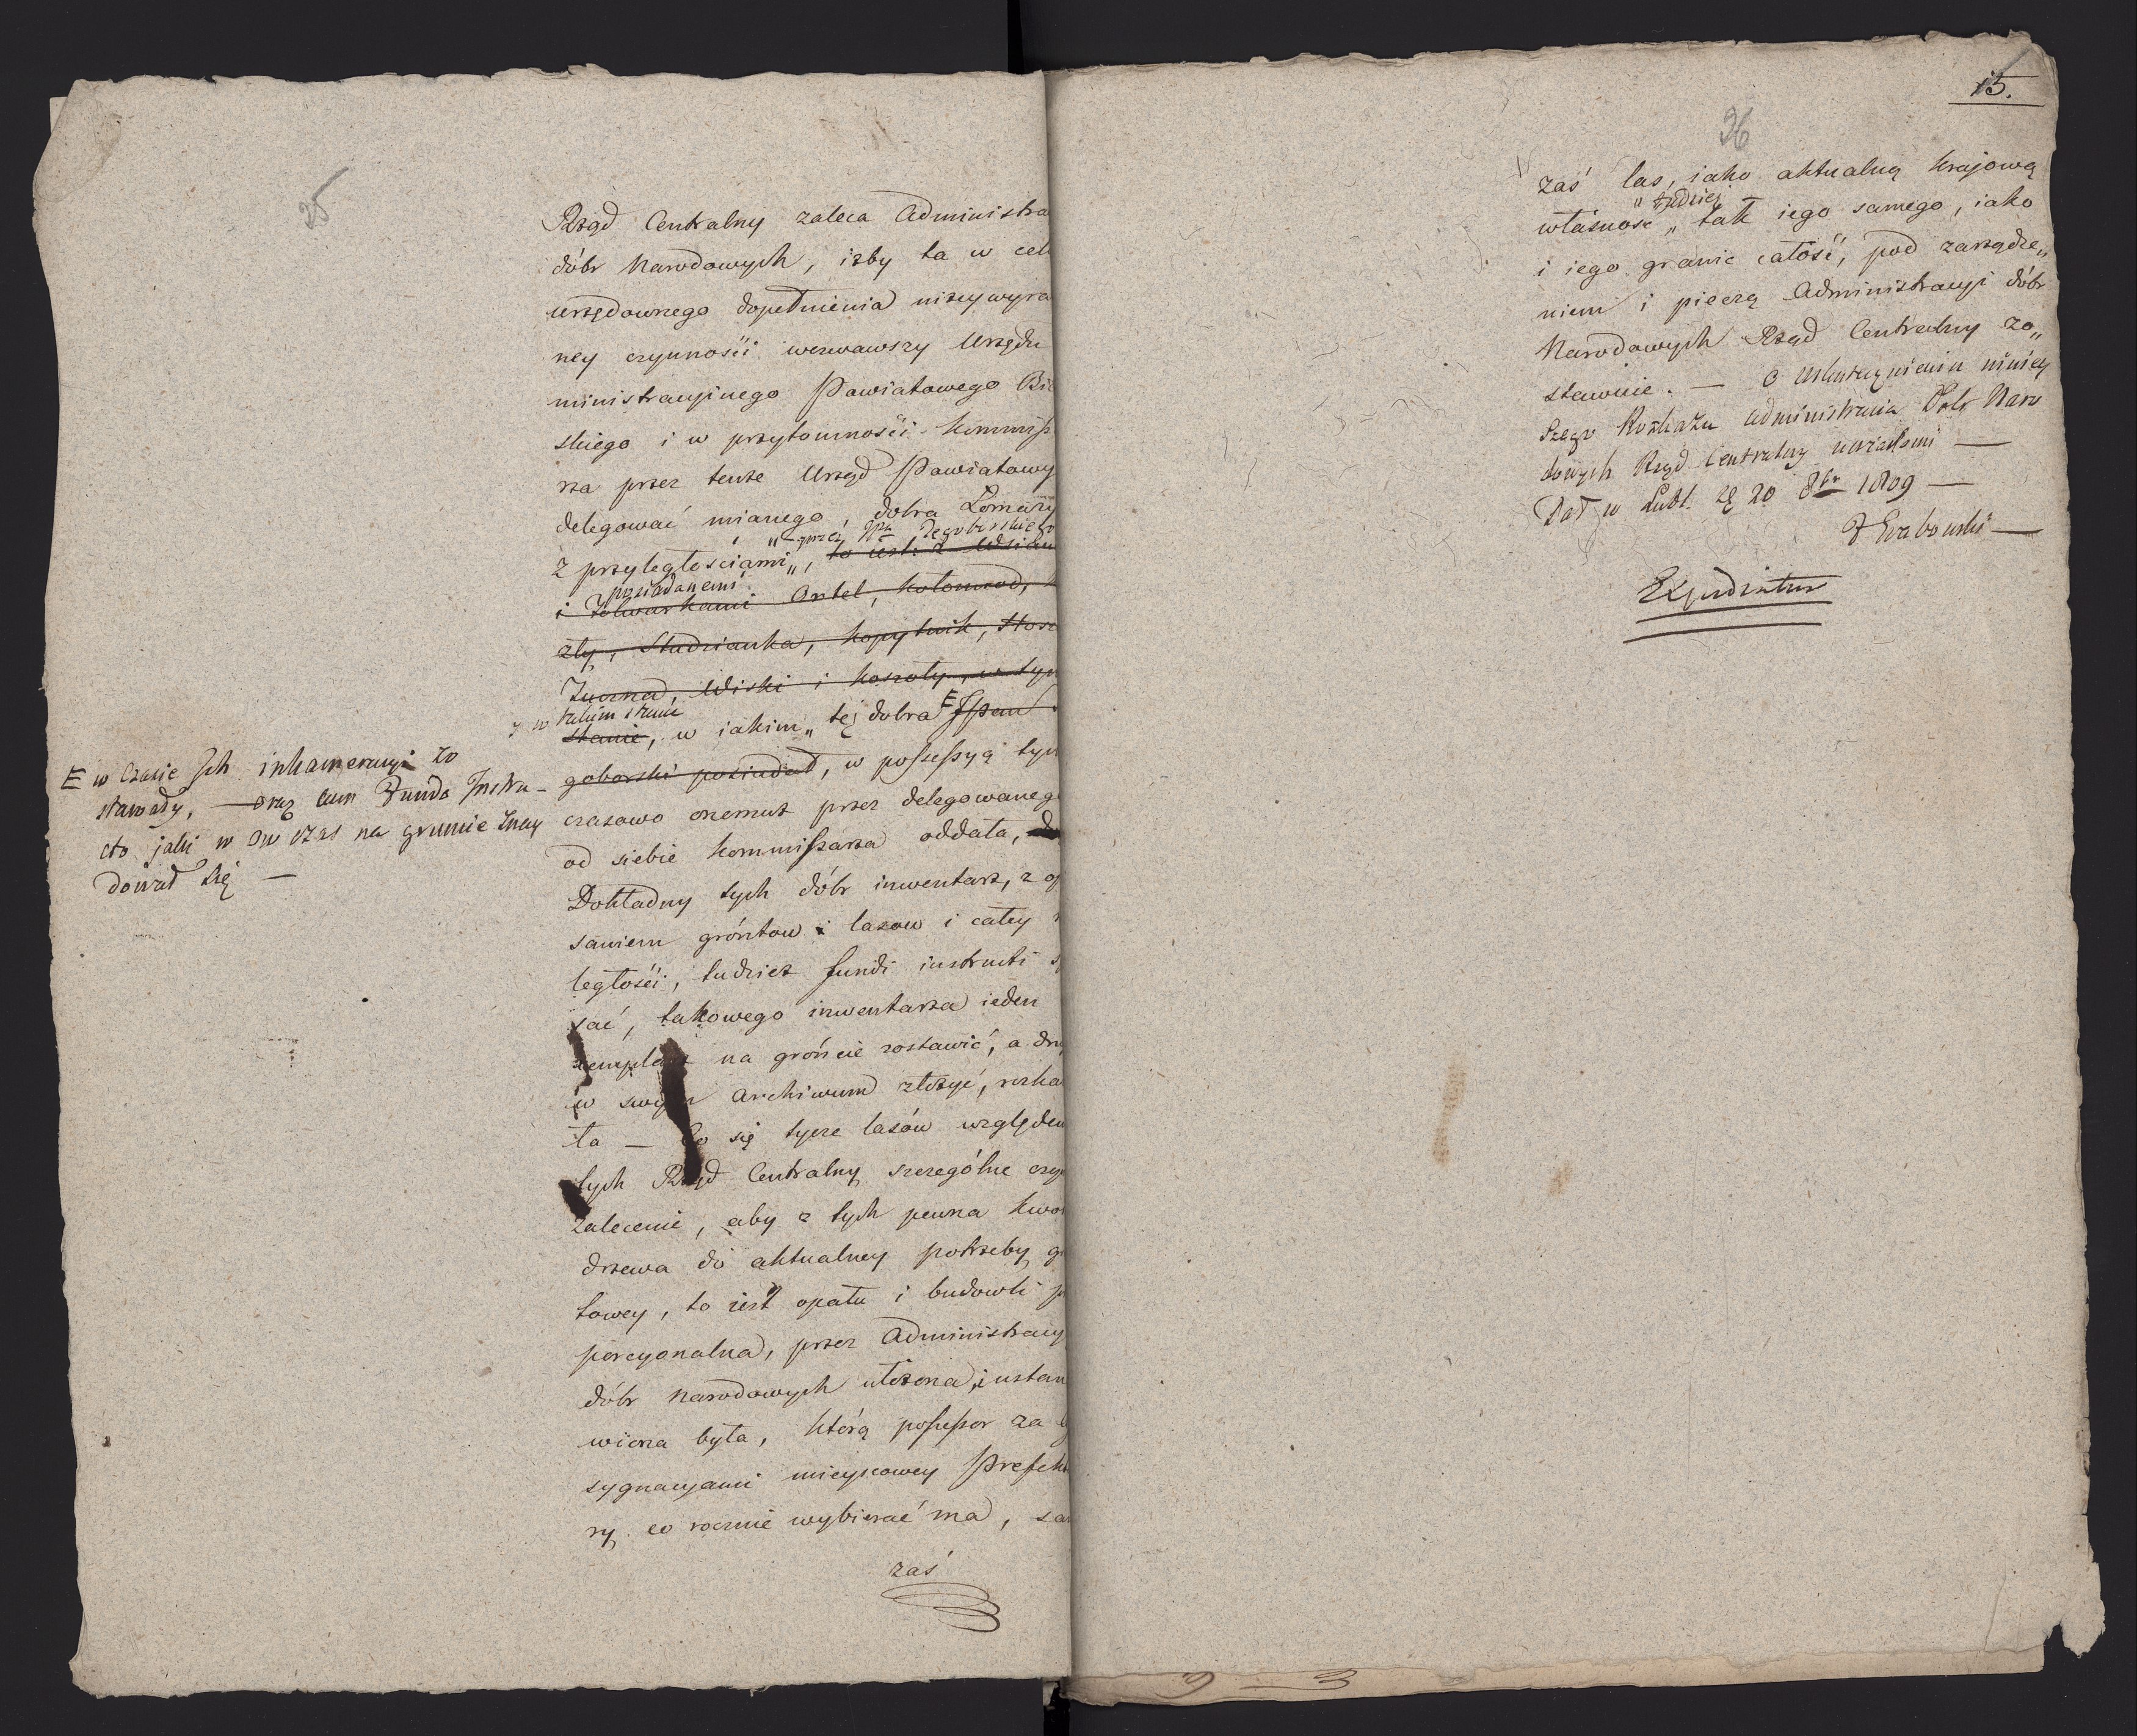 25
Rząd Centralny zaleca Administra
dóbr Narodowych, iżby ta w cel
urzędownego dopełnienia niżey wyra
ney czynnośći wezwawszy Urzędu
ministracyinego Powiatowego Bi
skiego i w przytomnośći Kommiss
rza przez tenże Urząd Powiatowy
delegować mianego, dobra Łomazy
„przez JPa Degoborskiego
z przyległościami„, to iest: z Wsiam
posiadanemi
i folwarkami Ortel, Kolomrad,
zły, Studzianka, Kopytnik,
Żurmed, Wiski i Koszoły, w tym
y w takim stanie
stanie, w iakim„ tę dobra E JPan
goborski posiadał, w possessyą tym
czasowo onemuż przez delegowaneg
od siebie Kommissarza oddała,
Dokładny tych dóbr inwentarz, z o
saniem gróntow i lasow i całey
ległośći, tudzież fundi instructi s
sać, takowego inwentarza ieden
zemplarz na grońcie zostawić, a dru
w swym Archiwum złożyć, rozka
ła — Co się tycze lasów względem
tych Rząd Centralny szczególne czy
zalecenie, aby z tych pewna kwo
drzewa do aktualney potrzeby g
towey, to iest opału i budowli p
porcyonalna, przez Administracy
dóbr Narodowych ułożona, i ustan
wiona była, którą possessor za
sygnacyami mieyscowey Prefekt
ry co rocznie wybierać ma, sa
zaś
E w Czasie Jch inkameracyi zo
stawały, — oraz cum Fundo Instru-
cto jaki w ów czas na gruncie znay
dował się —
15.
26
zaś las, iako aktualną Krajową
„tudzież
własność „ tak iego samego, iako
i iego granic całość, pod zarządze„
niem i pieczą Administracyi dóbr
Narodowych Rząd Centralny zo„
stawuie. — O uskutecznieniu niniey
szego Rozkazu Administracia Dobr Naro
dowych Rząd Centralny uwiadomi —
Dat w Lubl. d. 20 8br 1809 —
J Grabowski —
Expediatur